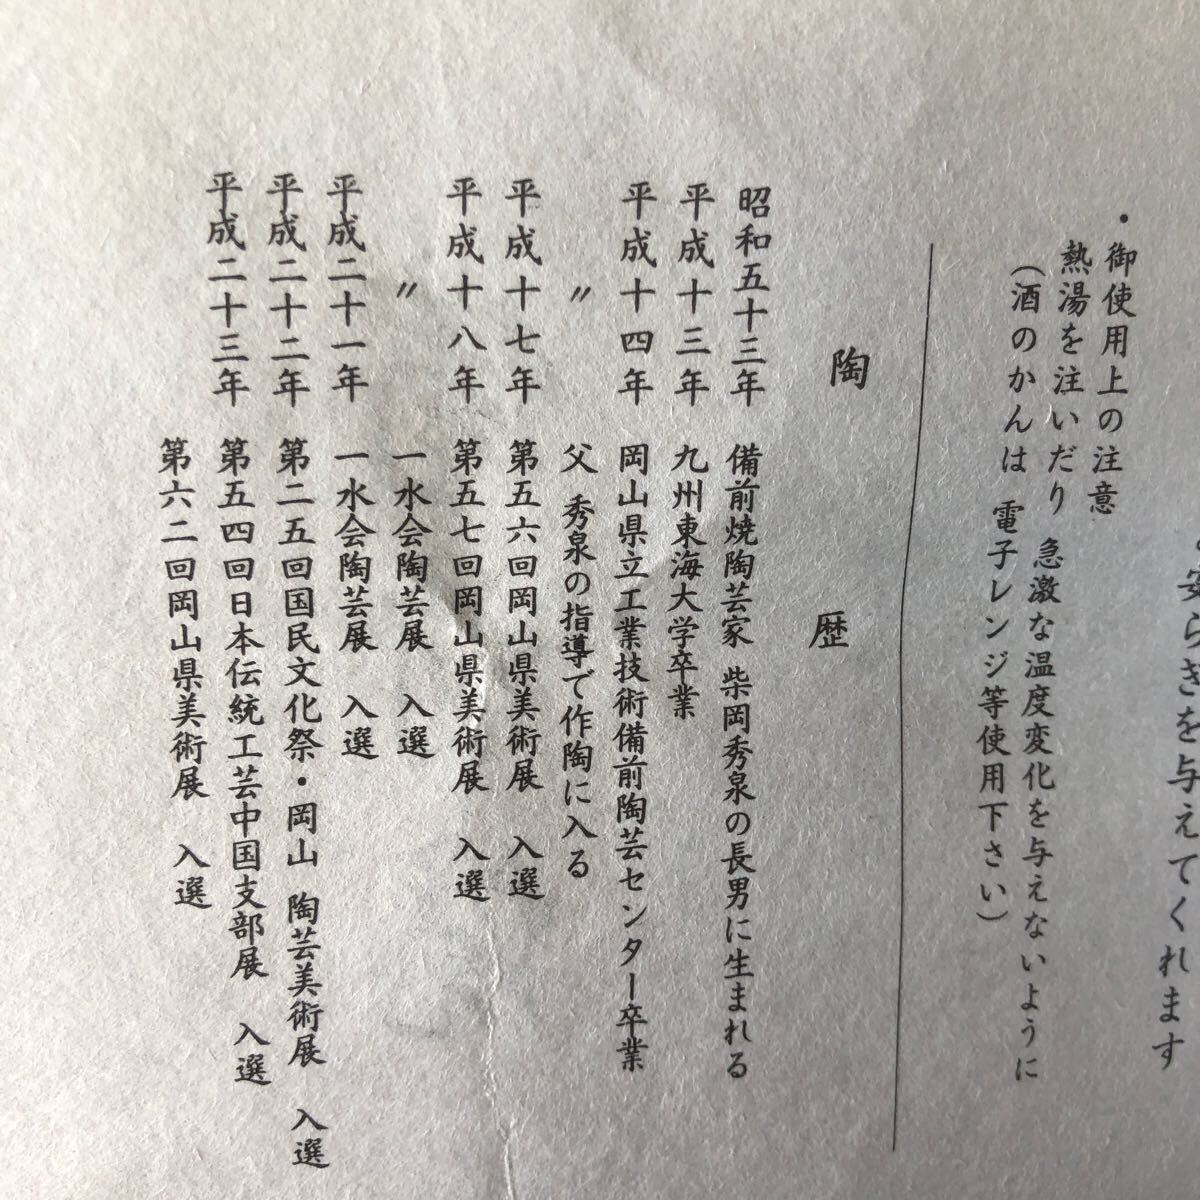 安らぎを与えてくれます
・御使用上の注意
熱湯を注いだり 急激な温度変化を与えないように
(酒のかんは 電子レンジ等使用下さい)
陶 歴
昭和五十三年 備前焼陶芸家 柴岡秀泉の長男に生まれる
平成十三年 九州東海大学卒業
平成十四年 岡山県立工業技術備前陶芸センター卒業
〃 父 秀泉の指導で作陶に入る
平成十七年 第五六回岡山県美術展 入選
平成十八年 第五七回岡山県美術展 入選
〃 一水会陶芸展 入選
平成二十一年 一水会陶芸展 入選
平成二十二年 第二五回国民文化祭・岡山 陶芸美術展 入選
平成二十三年 第五四回日本伝統工芸中国支部展 入選
第六二回岡山県美術展 入選